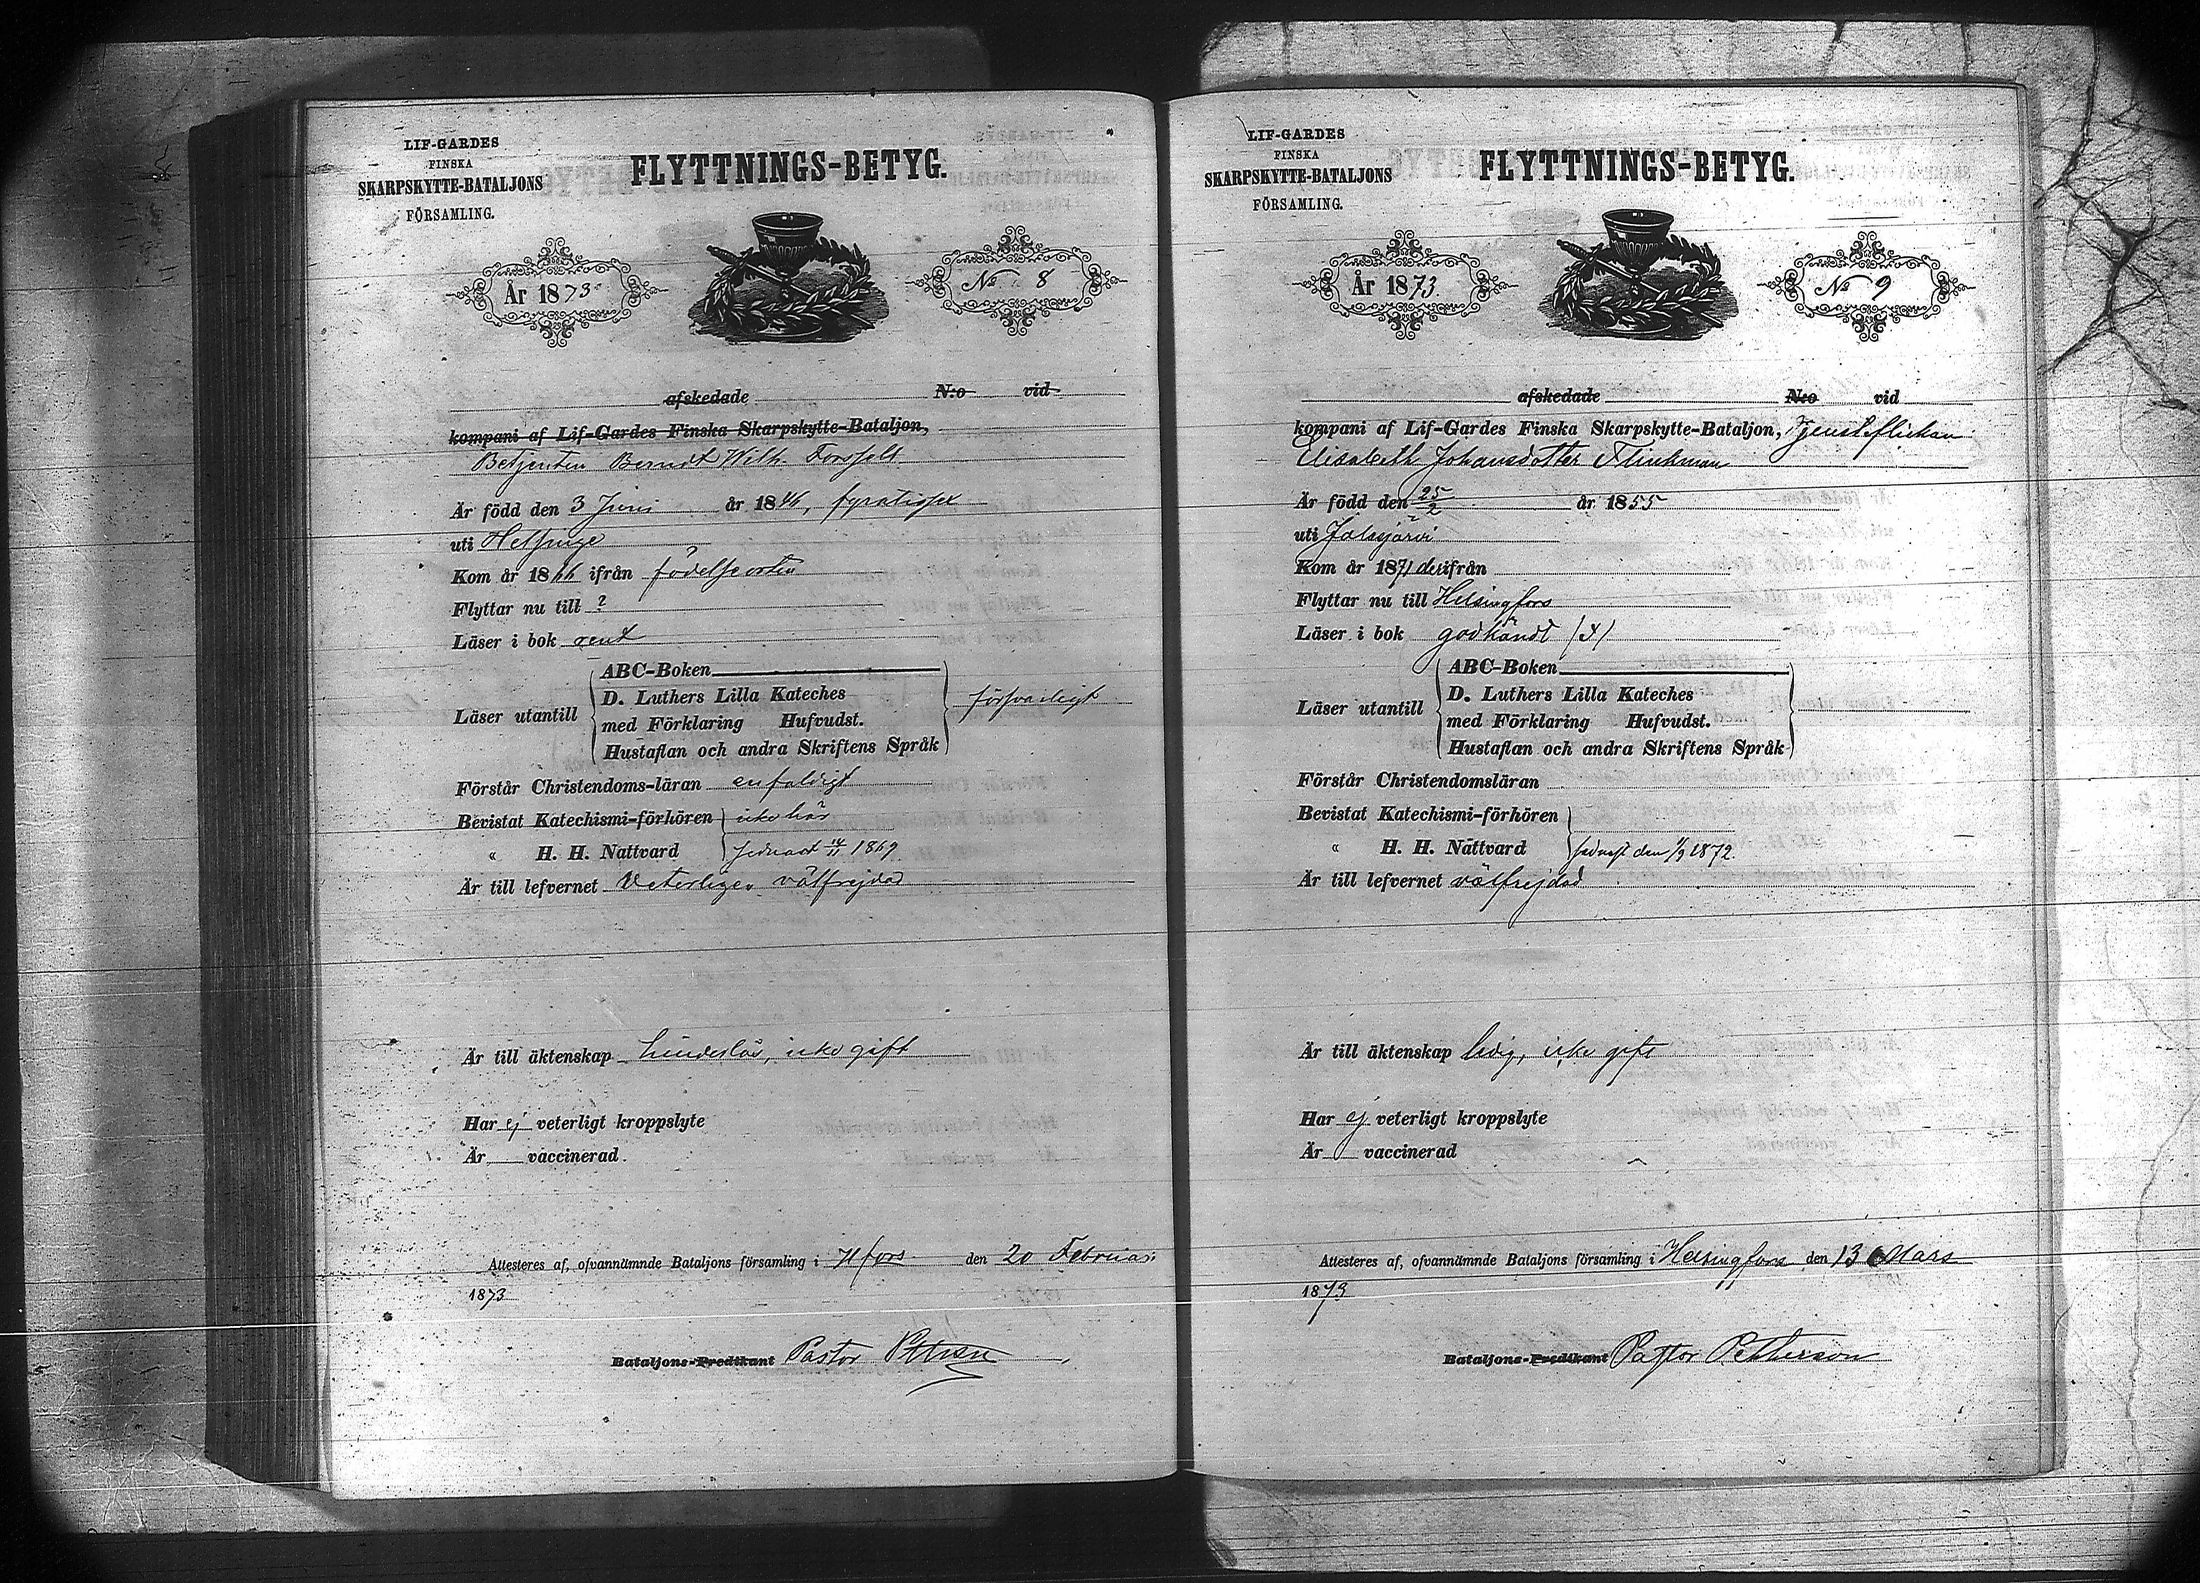 LIF-GARDES
FINSKA
SKARPSKYTTE-BATALJONS
FÖRSAMLING.
FLYTTNINGS-BETYG.
År 1873
No 8
afskedade N:o vid
kompani af Lif-Gardes Finska Skarpskytte-Bataljon,
Betjenten Berndt Wilh. Forssell
Är född den 3 Juni år 1846, fyratisex
uti Helsinge
Kom år 1866 ifrån födelseorten
Flyttar nu till ?
Läser i bok rent
ABC-Boken
D. Luthers Lilla Kateches
med Förklaring Hufvudst.
Läser utantill försvarligt
Hustaflan och andra Skriftens Språk
Förstår Christendoms-läran enfaldigt
Bevistat Katechismi-förhören icke här
« H. H. Nattvard 1869
Är till lefvernet Veterligen välfrejdad
Är till äktenskap hinderlös, icke gift
Har ej veterligt kroppslyte
Är vaccinerad.
Attesteres af, ofvannämnde Bataljons församling i Hfors den 20 Februari
1873
Bataljons-Predikant Pastor
LIF-GARDES
FINSKA
SKARPSKYTTE-BATALJONS
FÖRSAMLING.
FLYTTNINGS-BETYG.
År 1873
No 9
afskedade N:o vid
kompani af Lif-Gardes Finska Skarpskytte-Bataljon, Tjensteflickan
Elisabeth Johansdotter Flinkman
Är född den 25/2 år 1855
uti Jalasjärvi
Kom år 1871 derifrån
Flyttar nu till Helsingfors
Läser i bok godkändt
ABC-Boken
D. Luthers Lilla Kateches
med Förklaring Hufvudst.
Läser utantill
Hustaflan och andra Skriftens Språk
Förstår Christendomsläran
Bevistat Katechismi-förhören
« H. H. Nattvard senast den 1/9 1872.
Är till lefvernet välfrejdad
Är till äktenskap ledig, icke gift
Har ej veterligt kroppslyte
Är vaccinerad
Attesteres af, ofvannämnde Bataljons församling i Helsingfors den 13 Mars
1873
Bataljons-Predikant Pastor Petterson